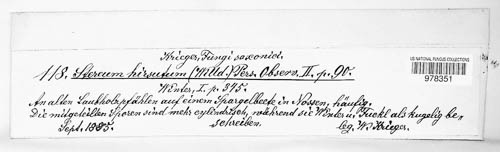 Krieger, Fungi saxonici.
118. Stereum hirsutum (Willd.) Pers. Observ. II. p. 90.
Winter, I. p. 345.
An alten Laubholzpfählen auf einem Spargelbeete in Nossen, häufig.
Die mitgeteilten Sporen sind mehr cylindrisch, während sie Winter u. Fuckel als kugelig be-
schreiben.
Sept. 1885. leg. W. Krieger.
US NATIONAL FUNGUS COLLECTIONS
978351